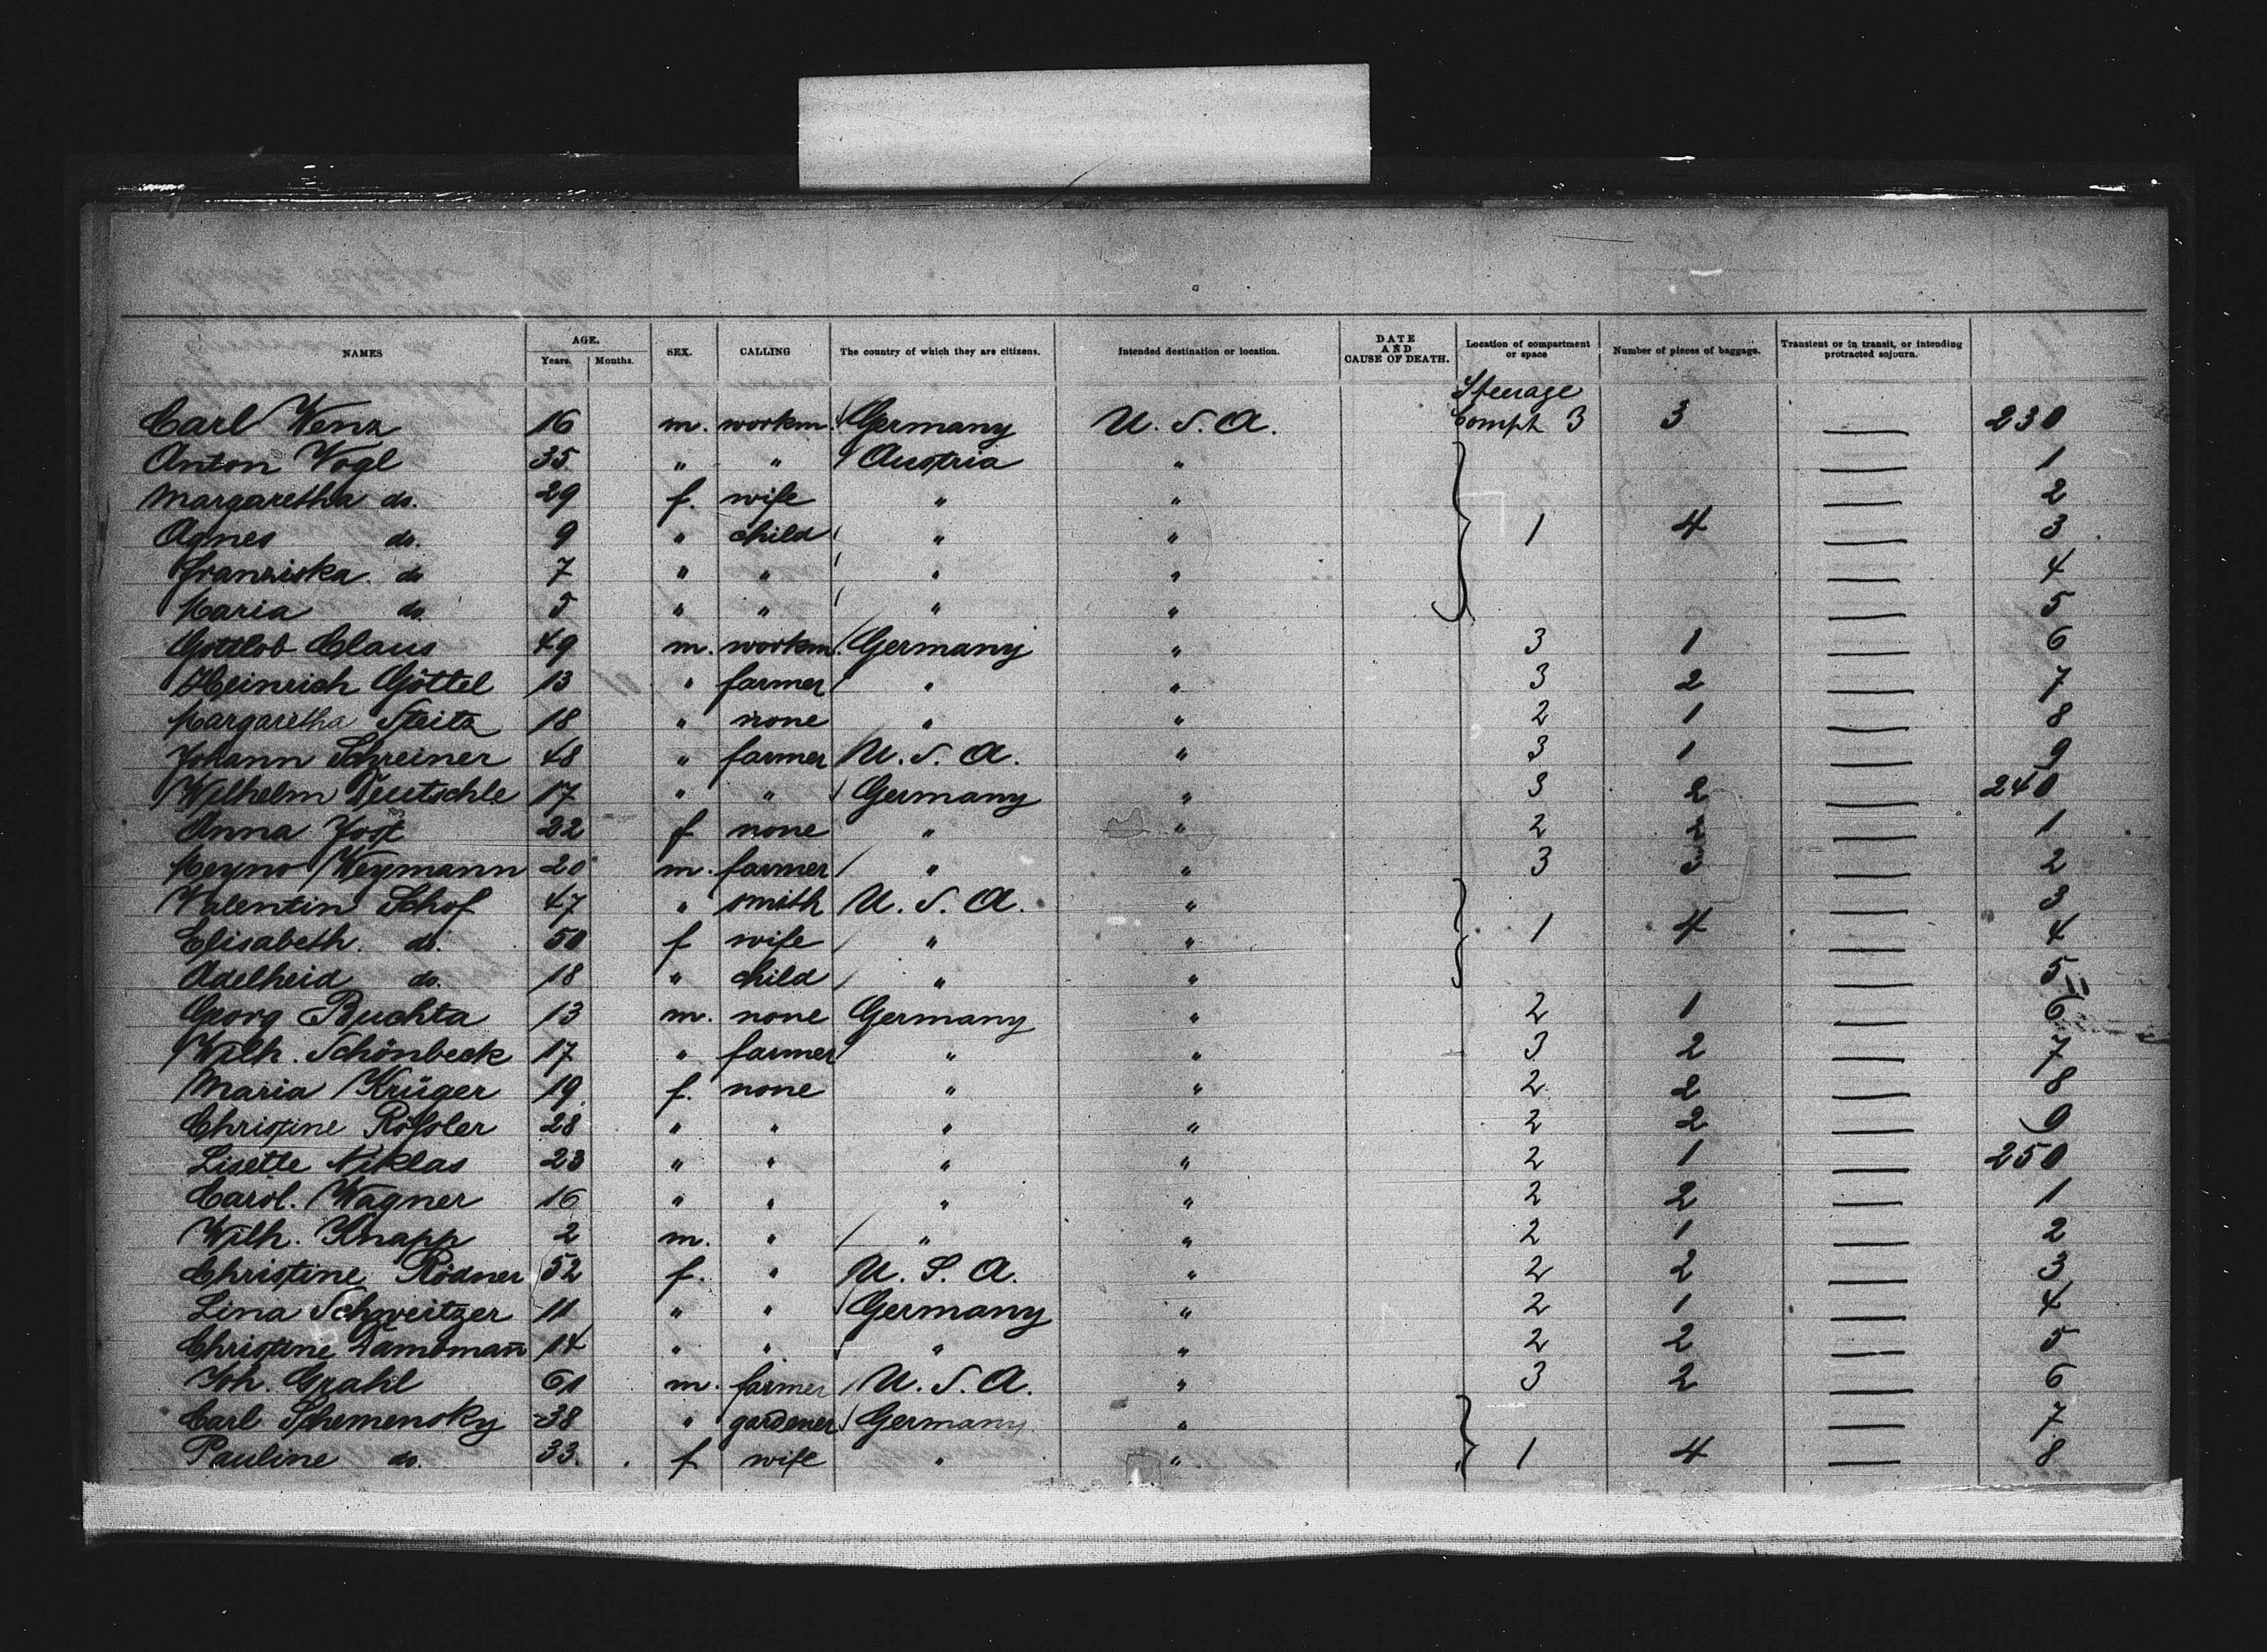 NAMES AGE. Years. Months. SEX. CALLING The country of which they are citizens. Intended destination or location. DATE AND CAUSE OF DEATH. Location of compartment or space Number of pieces of baggage. Transient or in transit, or intending protracted sojourn.
Steerage
Carl Wenz 16 m. workm. Germany U. S. A. Compt 3 3 — 230
Anton Vogl 35 " " Austria " — 1
Margaretha do. 29 f. wife " " — 2
Agnes do. 9 " child " " 1 4 — 3
Franziska do 7 " " " " — 4
Maria do. 5 " " " " — 5
Gottlob Claus 49 m. workm. Germany " 3 1 — 6
Heinrich Göttel 13 " farmer " " 3 2 — 7
Margaretha Steitz 18 " none " " 2 1 — 8
Johann Schreiner 48 " farmer U. S. A. " 3 1 — 9
Wilhelm Deutschle 17 " " Germany " 3 2 — 240
Anna Jost 22 f none " " 2 2 — 1
Meyno Weymann 20 m. farmer " " 3 — 2
Valentin Schof 47 " smith U. S. A. " — 3
Elisabeth do. 50 f wife " " 1 4 — 4
Adelheid do. 18 " child " " — 5
Georg Buchta 13 m. none Germany " 2 1 — 6
Wilh. Schönbeck 17 " farmer " " 3 2 — 7
Maria Krüger 19 f. none " " 2 2 — 8
Christine Rößler 28 " " " " 2 2 — 9
Lisette Niklas 23 " " " " 2 1 — 250
Carol. Wagner 16 " " " " 2 2 — 1
Wilh. Knapp 2 m. " " " 2 1 — 2
Christine Rödner 52 f. " U. S. A. " 2 2 — 3
Lina Schweitzer 11 " " Germany " 2 1 — 4
Christine 14 " " " " 2 2 — 5
Joh. Grahl 61 m. farmer U. S. A. " 3 2 — 6
Carl Schemensky 38 " gardener Germany " — 7
Pauline do. 33 f wife " " 1 4 — 8